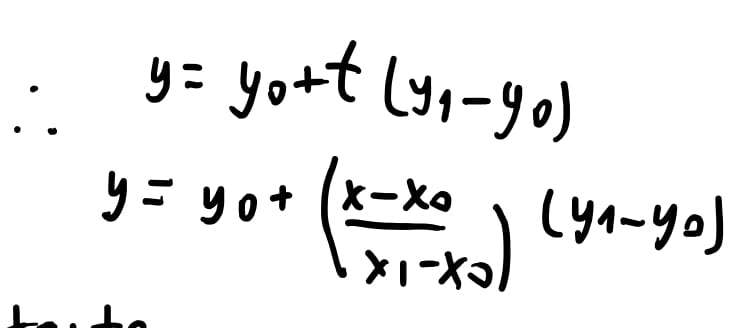 ∴ y = y₀ + t (y₁ - y₀)
y = y₀ + ((x - x₀)/(x₁ - x₀)) (y₁ - y₀)